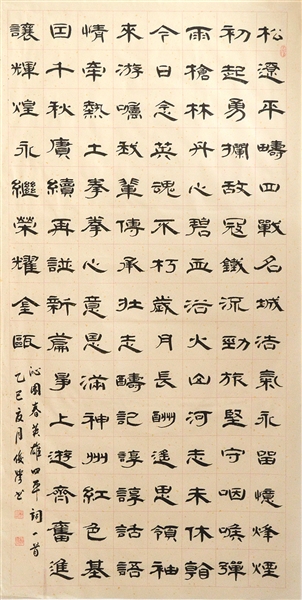 松遼平疇四戰名城浩氣永留憶烽煙
初起勇攔敵寇鐵流勁旅堅守咽喉彈
雨槍林丹心碧血浴火山河志未休
今日念英魂不朽歲月長酬遙思領袖
來游囑我輩傳承壯志疇記諄諄話語
情牽熱土拳拳心意恩滿神州紅色基
因千秋賡續再譜新篇爭上遊齊奮進
讓輝煌永繼榮耀金甌
沁園春英雄四平詞一首
乙巳夏月俊書